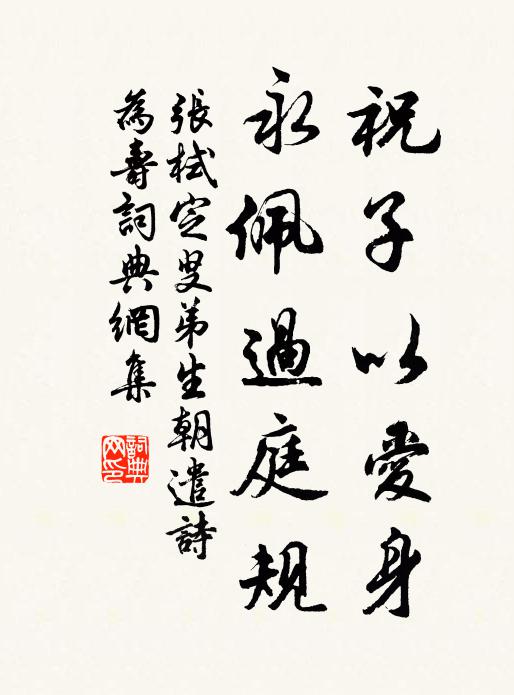 祝子以愛身
永佩過庭規
張栻定叟弟生朝遣詩
為壽詞典網集
詞典網印